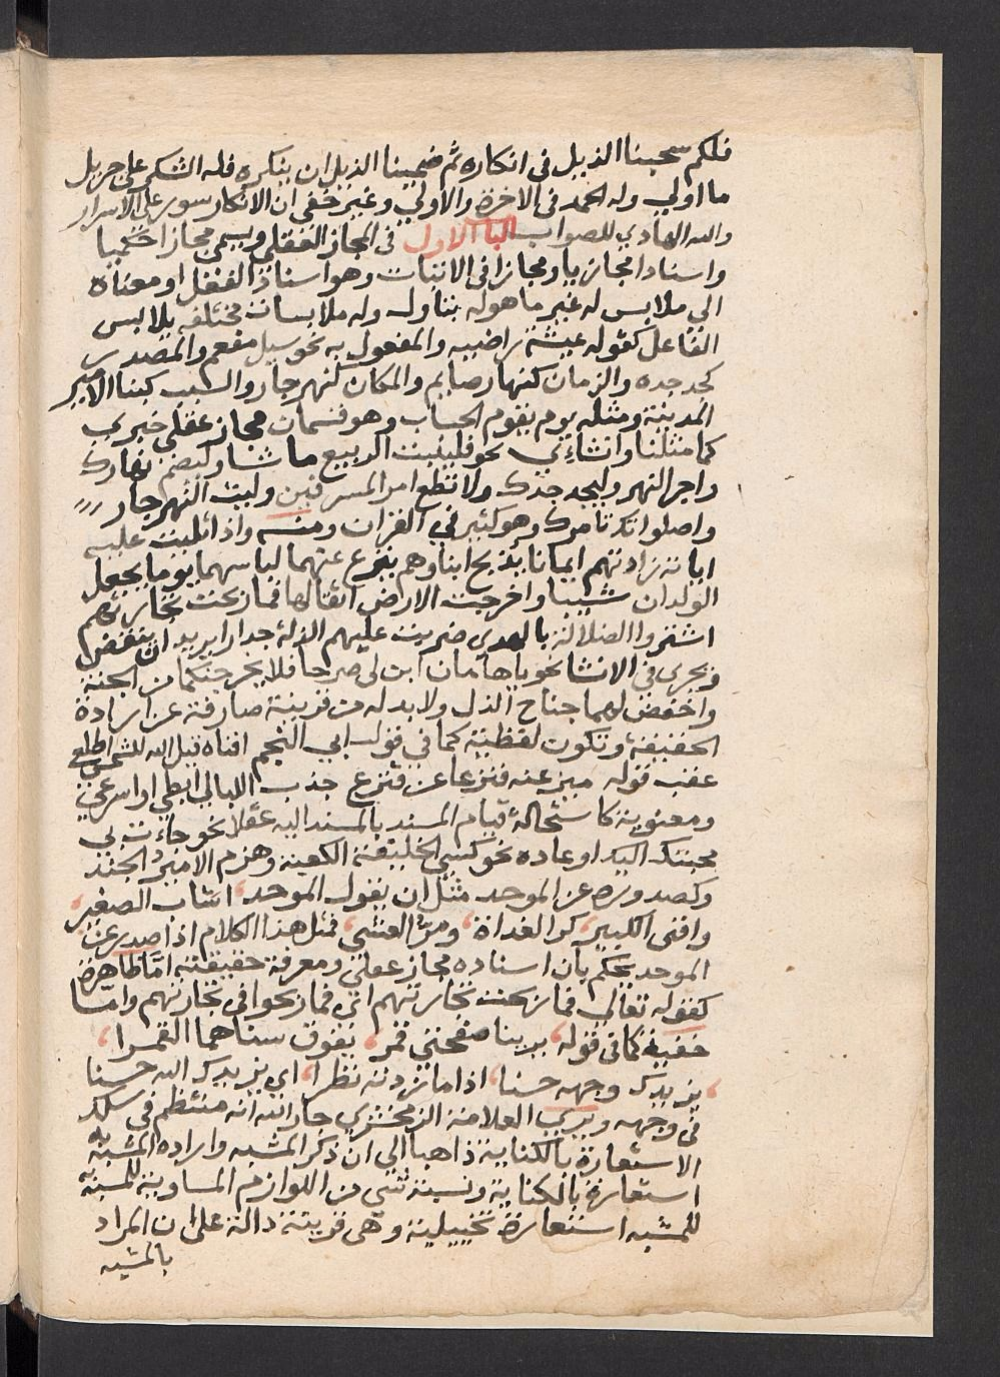 فلكم سحبنا الذيل في انكاره ثم ضممنا الذيل ان ينكره فله الشكر على جزيل
ما اولي وله الحمد في الاخرة والاولي وغير خفي ان الانكار سور على الاسرار
والله الهادي للصواب الباب الاول في المجاز العقلي ويسمي مجازا حكميا
واسنادا مجازيا ومجازا في الاثبات وهو اسناد الفعل او معناه
الي ملابس له غير ما هو له بتاول وله ملابسات مختلفه يلابس
الفاعل كقوله عيشة راضيه والمفعول به نحو سيل مفعم والمصدر
كجد جده والزمان كنهار صايم والمكان كنهر جار والسبب كبنا الامير
المدينة ومثله يوم يقوم الحساب وهو قسمان مجاز عقلي خبري
كما مثلنا وانشاءي نحو فلينبت الربيع ما شا وليصم نهارك
واجر النهر وليجد جدك ولا تطع امر المسرفين وليت النهر جار
واصلواتك تامرك وهو كثير في القران ومنه واذا تليت عليه
اياته زادتهم ايمانا يذبح ابناءهم ينزع عنهما لباسهما يوما يجعل
الولدان شيبا واخرجت الارض اثقالها فما ربحت تجارتهم
اشتروا الضلالة بالهدي ضربت عليهم الذلة جدارا يريد ان ينقض
ويجري في الانشا نحو ياهامان ابن لى صرحا فلا يخرجنكما من الجنة
واخفض لهما جناح الذل ولا بد له من قرينة صارفة عن ارادة
الحقيقة وتكون لفظية كما في قول ابي النجم افناه قيل الله للشمس اطلع
عقب قوله ميز عنه قنزعا عن قنزع جذب الليالي ابطي او اسرعي
ومعنوية كاستحالة قيام المسند بالمسند اليه عقلا نحو جاءت بي
محبتك اليك او عاده نحو كسي الخليفة الكعبة وهزم الامير الجند
وكصدوره عن الموحد مثل ان يقول الموحد اشاب الصغير
وافنى الكبير كر الغداة ومر العشي فمثل هذا الكلام اذا صدر عن
الموحد يحكم بان اسناده مجاز عقلي ومعرفة حقيقته اما ظاهرة
كقوله تعالي فما ربحت تجارتهم اي فما ربحوا في تجارتهم واما
خفية كما في قوله يرينا صفحتي قمر يفوق سناهما القمرا
يزيدك وجهه حسنا اذا ما زدته نظرا اي يزيدك الله حسنا
في وجهه ويري العلامة الزمخشري جار الله انه منتظم في سلك
الاستعارة بالكناية ذاهبا الى ان ذكر المشبه وارادة المشبه به
استعارة بالكناية ونسبة شي من اللوازم المساوية للمشبه به
للمشبه استعارة تخييلية وهي قرينة دالة على ان المراد
بالمشبه